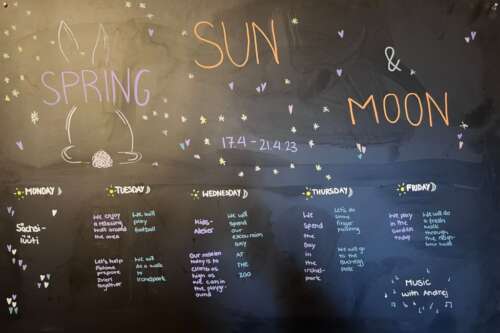 SUN
&
SPRING
MOON
17.4 - 21.4.23
MONDAY
TUESDAY
WEDNESDAY
THURSDAY
FRIDAY
Sächsi-
lüüti
We enjoy
a relaxing
walk around
the area
We will
play
football
Let's help
prepare
Zvieri
together
We will
do a walk
to
Irchelpark
Kids-
Atelier
Our mission
today is to
climb as
high as
we can in
the playgr-
ound
We will
spend
our
excursion
day
AT
THE
ZOO
We
Spend
the
Day
in
the
irchel-
park
Let's do
some
finger
painting
We will
go to the
turning
pole
We play
in the
Garden
today
We will do
a fresh
walk
through
the neigh-
bour hood
MUSIC
with Andrej